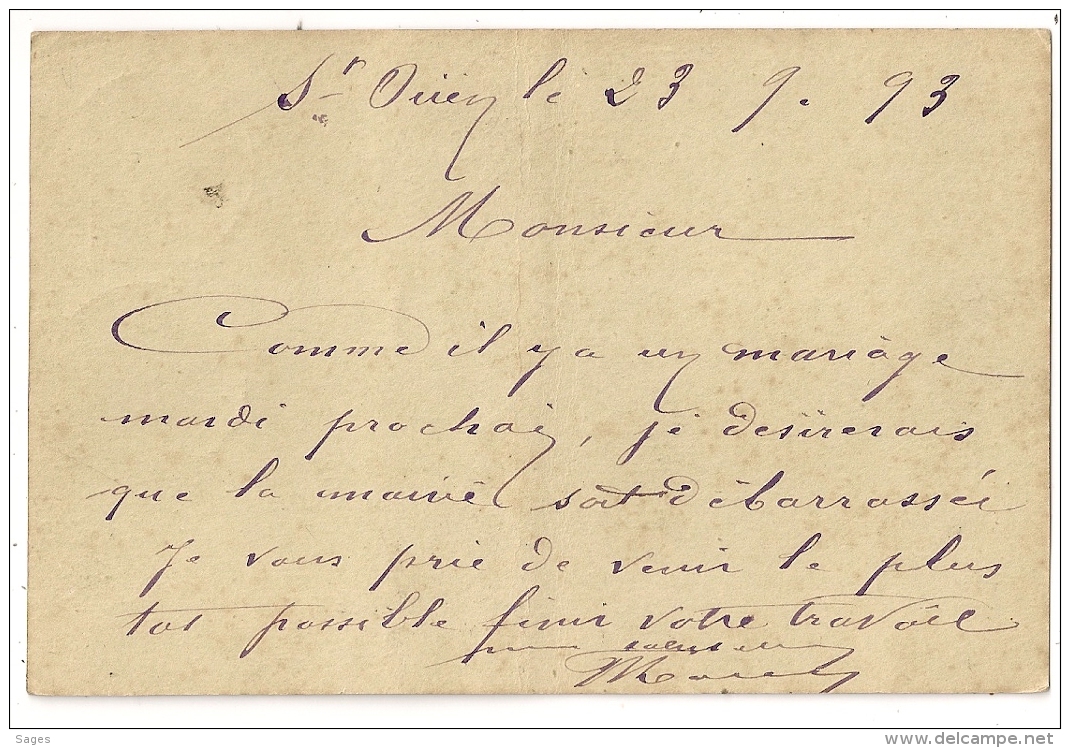 St Ouen le 23 9. 93
Monsieur
Comme il y a un mariage
mardi prochain, je désirerais
que la mairie soit débarrassée
Je vous prie de venir le plus
tot possible finir votre travail
Sages
www.delcampe.net